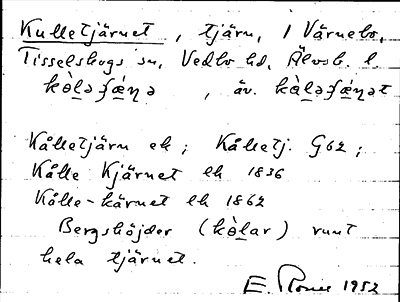 Kulletjärnet, tjärn, i Värnebo,
Tisselskogs sn, Vedbo hd, Älvsb. l.
, äv.
Kålletjärn ek; Kålletj. G62;
Kålle Kjärnet lh 1836
Kålle-kärnet lh 1862
Bergshöjder (kòlar) runt
hela tjärnet.
E. 1952